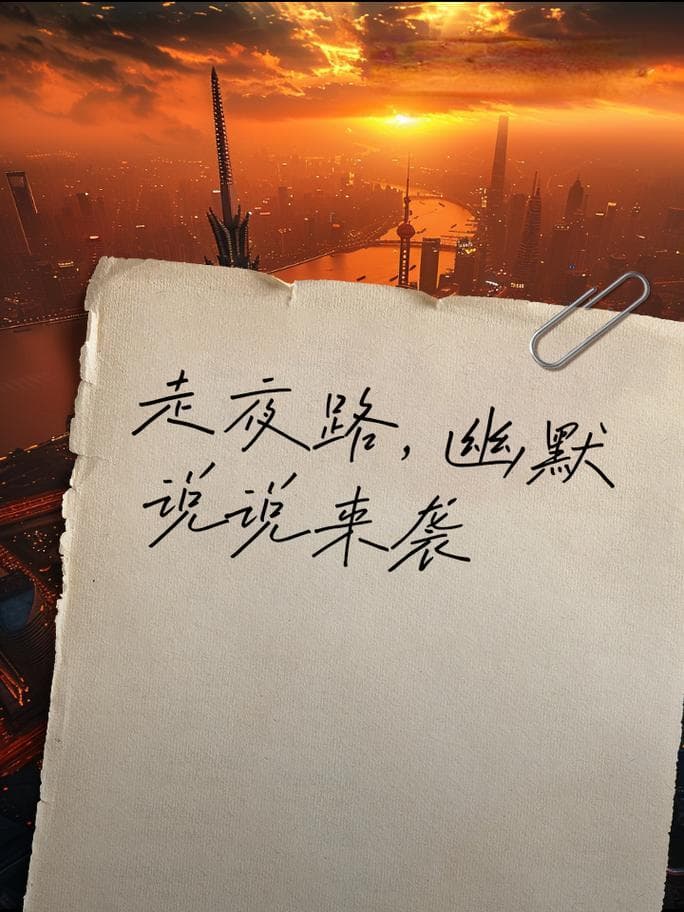 走夜路，幽默
说说来袭